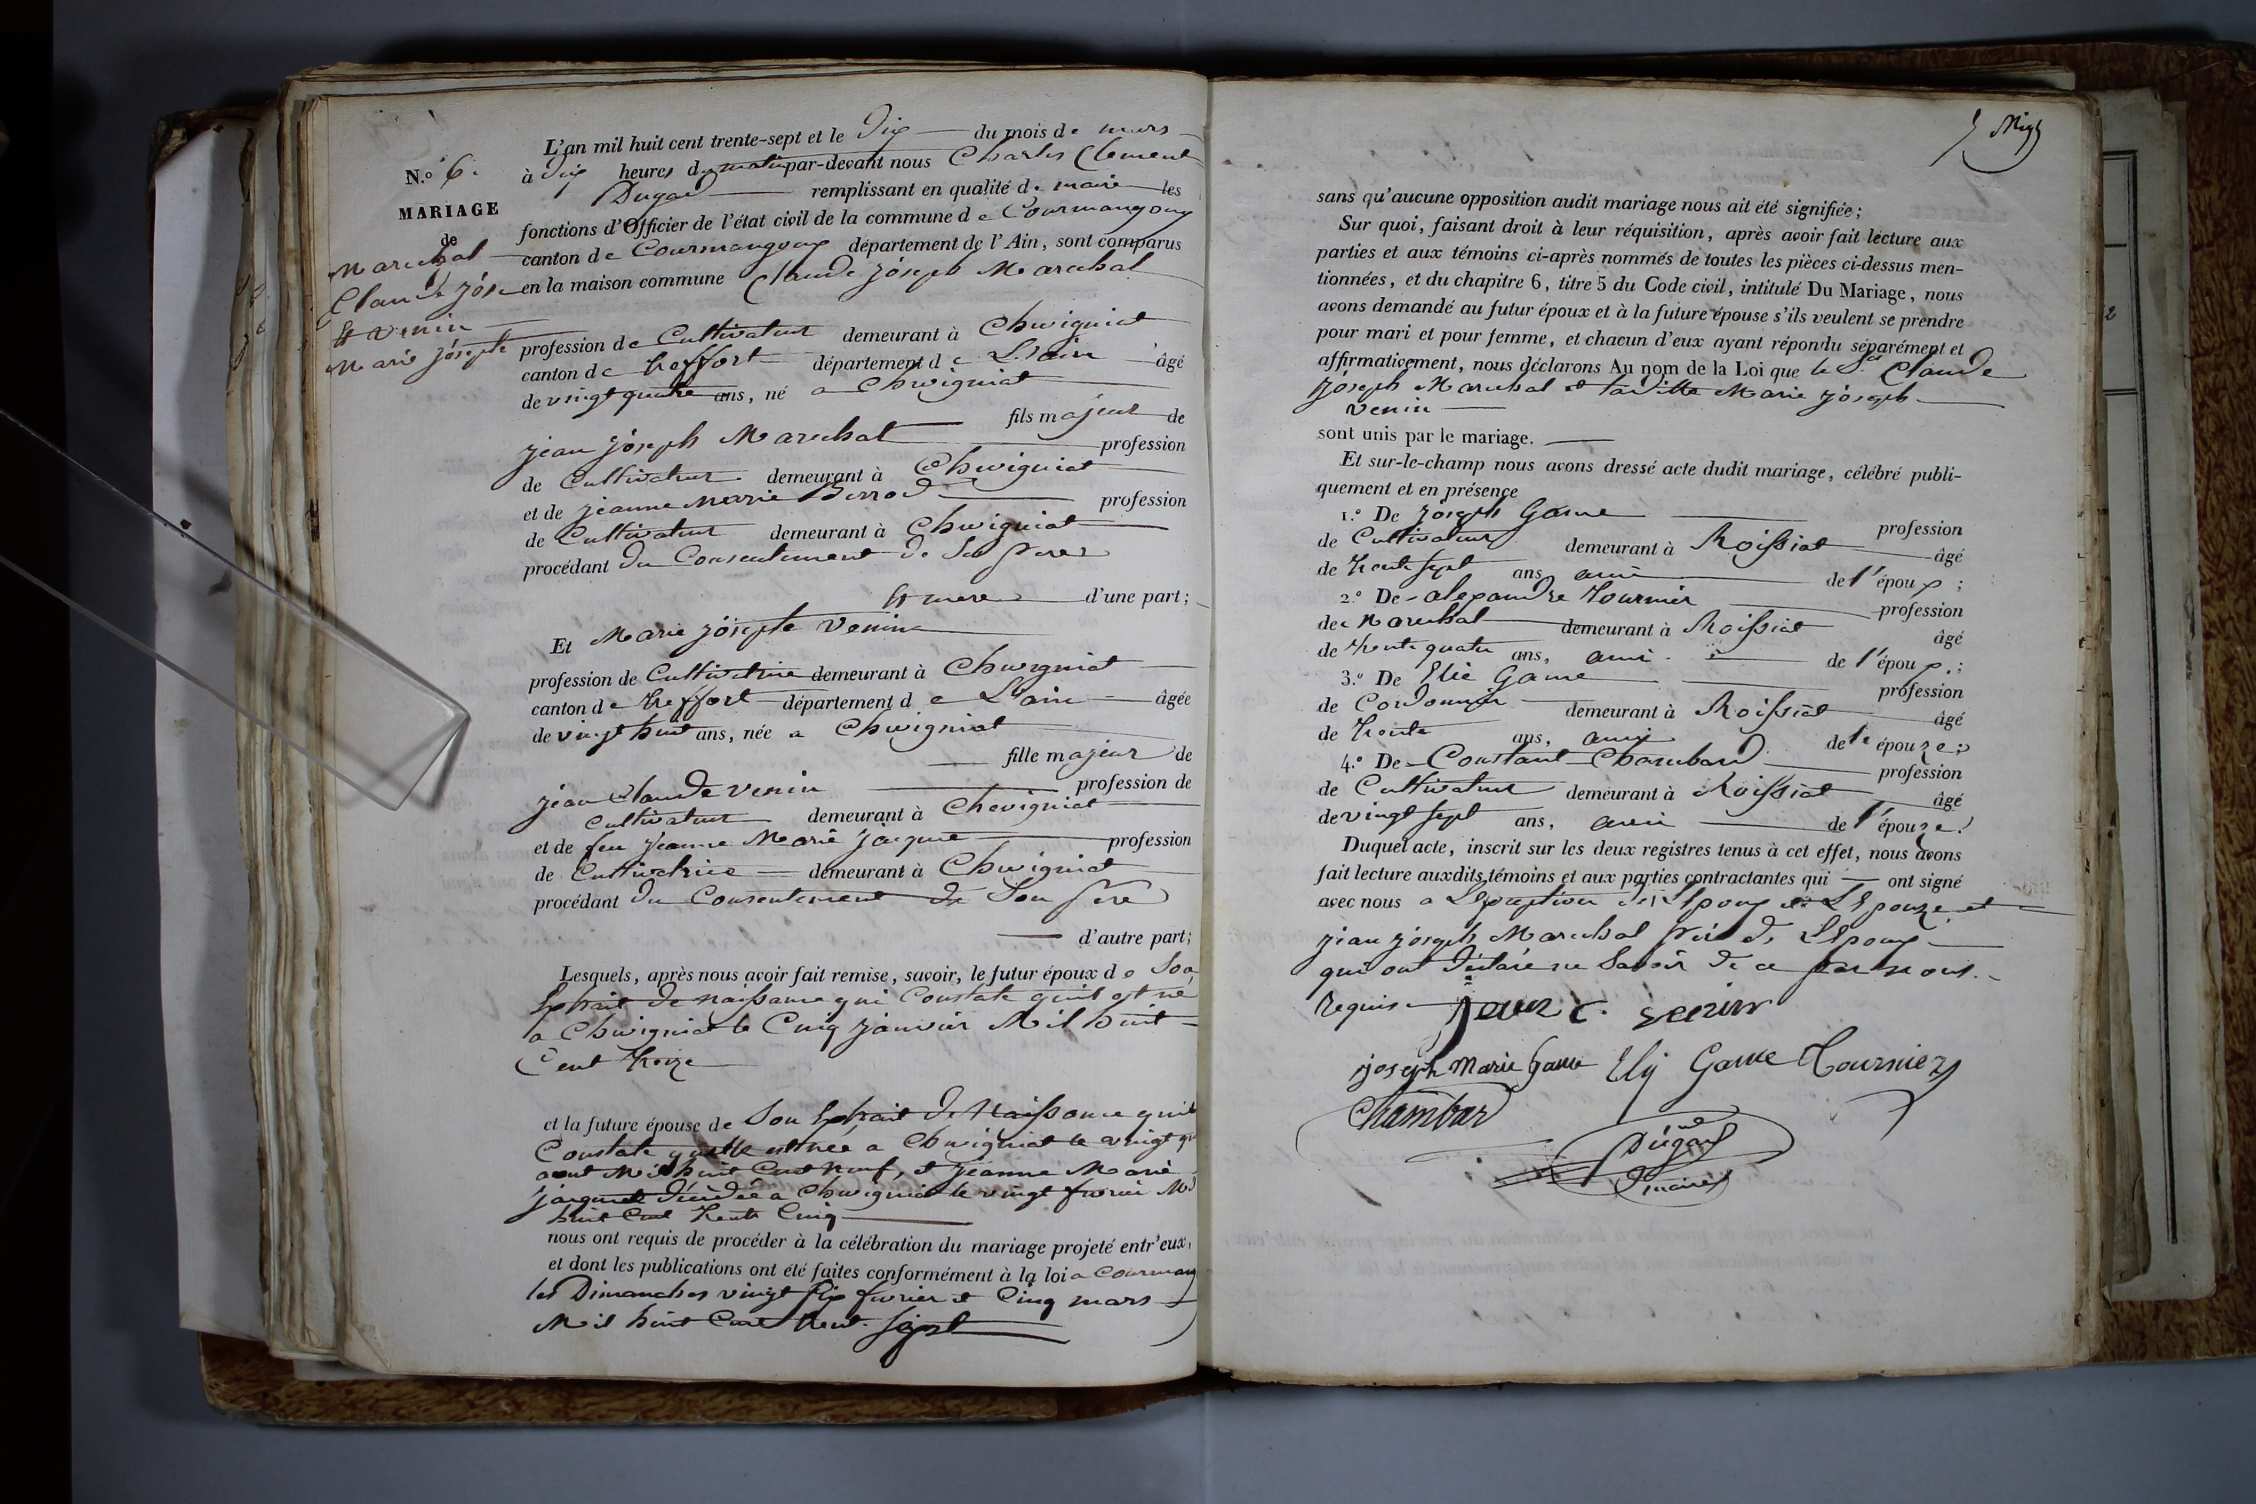 N.° 6.
MARIAGE
de
Marechal
Claude jose
Et venin
Marie josepte
L'an mil huit cent trente-sept et le Dix du mois de mars
à dix heures du matin par-devant nous Charles Clement
Dugad remplissant en qualité de maire les
fonctions d'Officier de l'état civil de la commune de Courmangoux
canton de Courmangoux département de l'Ain, sont comparus
en la maison commune Claude joseph Marechal
profession de Cultivateur demeurant à Chevigniat
canton de treffort département de L'ain âgé
de vingt quatre ans, né a Chevigniat
fils majeur de
jean joseph Marechal profession
de Cultivateur demeurant à Chevigniat
et de jeanne Marie Berrod profession
de Cultivateur demeurant à Chevigniat
procédant du Consentement de Ses pere
Et mere d'une part;
Et Marie josepte Venin
profession de Cultivatrice demeurant à Chevigniat
canton de treffort département de L'ain âgée
de vingt huit ans, née a Chevigniat
fille majeur de
jean Claude venin profession de
Cultivateur demeurant à Chevigniat
et de feu jeanne Marie jacquet profession
de Cultivatrice demeurant à Chevigniat
procédant du Consentement de Son pere
d'autre part;
Lesquels, après nous avoir fait remise, savoir, le futur époux de Son
Extrait de naissance qui Constate quil est né
a Chevigniat le Cinq janvier Mil huit
Cent treize
et la future épouse de Son Extrait de Naissance qui
Constate quelle est née a Chevigniat le vingt
aout Mil huit Cent neuf, et jeanne Marie
jacquet décédée a Chevigniat le vingt fevrier Mil
huit Cent trente Cinq
nous ont requis de procéder à la célébration du mariage projeté entr'eux,
et dont les publications ont été faites conformément à la loi a Courmang
les Dimanches vingt Six fevrier et Cinq mars
Mil huit Cent trente Sept
sans qu'aucune opposition audit mariage nous ait été signifiée;
Sur quoi, faisant droit à leur réquisition, après avoir fait lecture aux
parties et aux témoins ci-après nommés de toutes les pièces ci-dessus men-
tionnées, et du chapitre 6, titre 5 du Code civil, intitulé Du Mariage, nous
avons demandé au futur époux et à la future épouse s'ils veulent se prendre
pour mari et pour femme, et chacun d'eux ayant répondu séparément et
affirmativement, nous déclarons Au nom de la Loi que le Sr Claude
joseph Marechal et la ditte Marie joseph
venin
sont unis par le mariage.
Et sur-le-champ nous avons dressé acte dudit mariage, célébré publi-
quement et en présence
1.° De joseph Game profession
de Cultivateur demeurant à Roissiat âgé
de trente sept ans ami de l'époux;
2.° De alexandre tournier profession
de Marechal demeurant à Roissiat âgé
de trente quatre ans, ami de l'époux;
3.° De Elie Game profession
de Cordonnier demeurant à Roissiat âgé
de trente ans, ami de l'épouze;
4.° De Constant Chambard profession
de Cultivateur demeurant à Roissiat âgé
de vingt sept ans, ami de l'épouze!
Duquel acte, inscrit sur les deux registres tenus à cet effet, nous avons
fait lecture auxdits témoins et aux parties contractantes qui ont signé
avec nous a L'Exception de l'Epoux et L'Epouze et
jean joseph Marechal pere de L'Epoux
qui ont déclaré ne Savoir de ce par nous
requis
joseph Marie Game Ely Game Tournier
Chambard
Dugad
maire